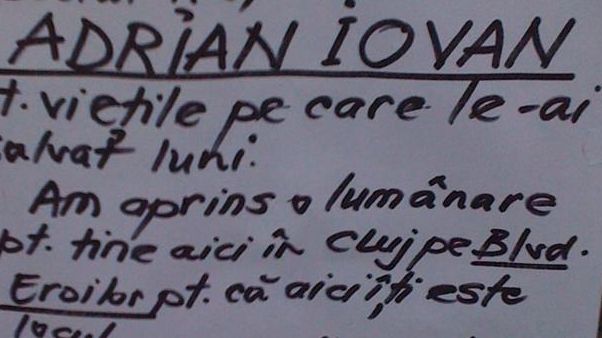 ADRIAN IOVAN
t. viețile pe care le-ai
salvat luni.
Am aprins o lumânare
pt. tine aici în Cluj pe Blvd.
Eroilor pt. că aici îți este
locul